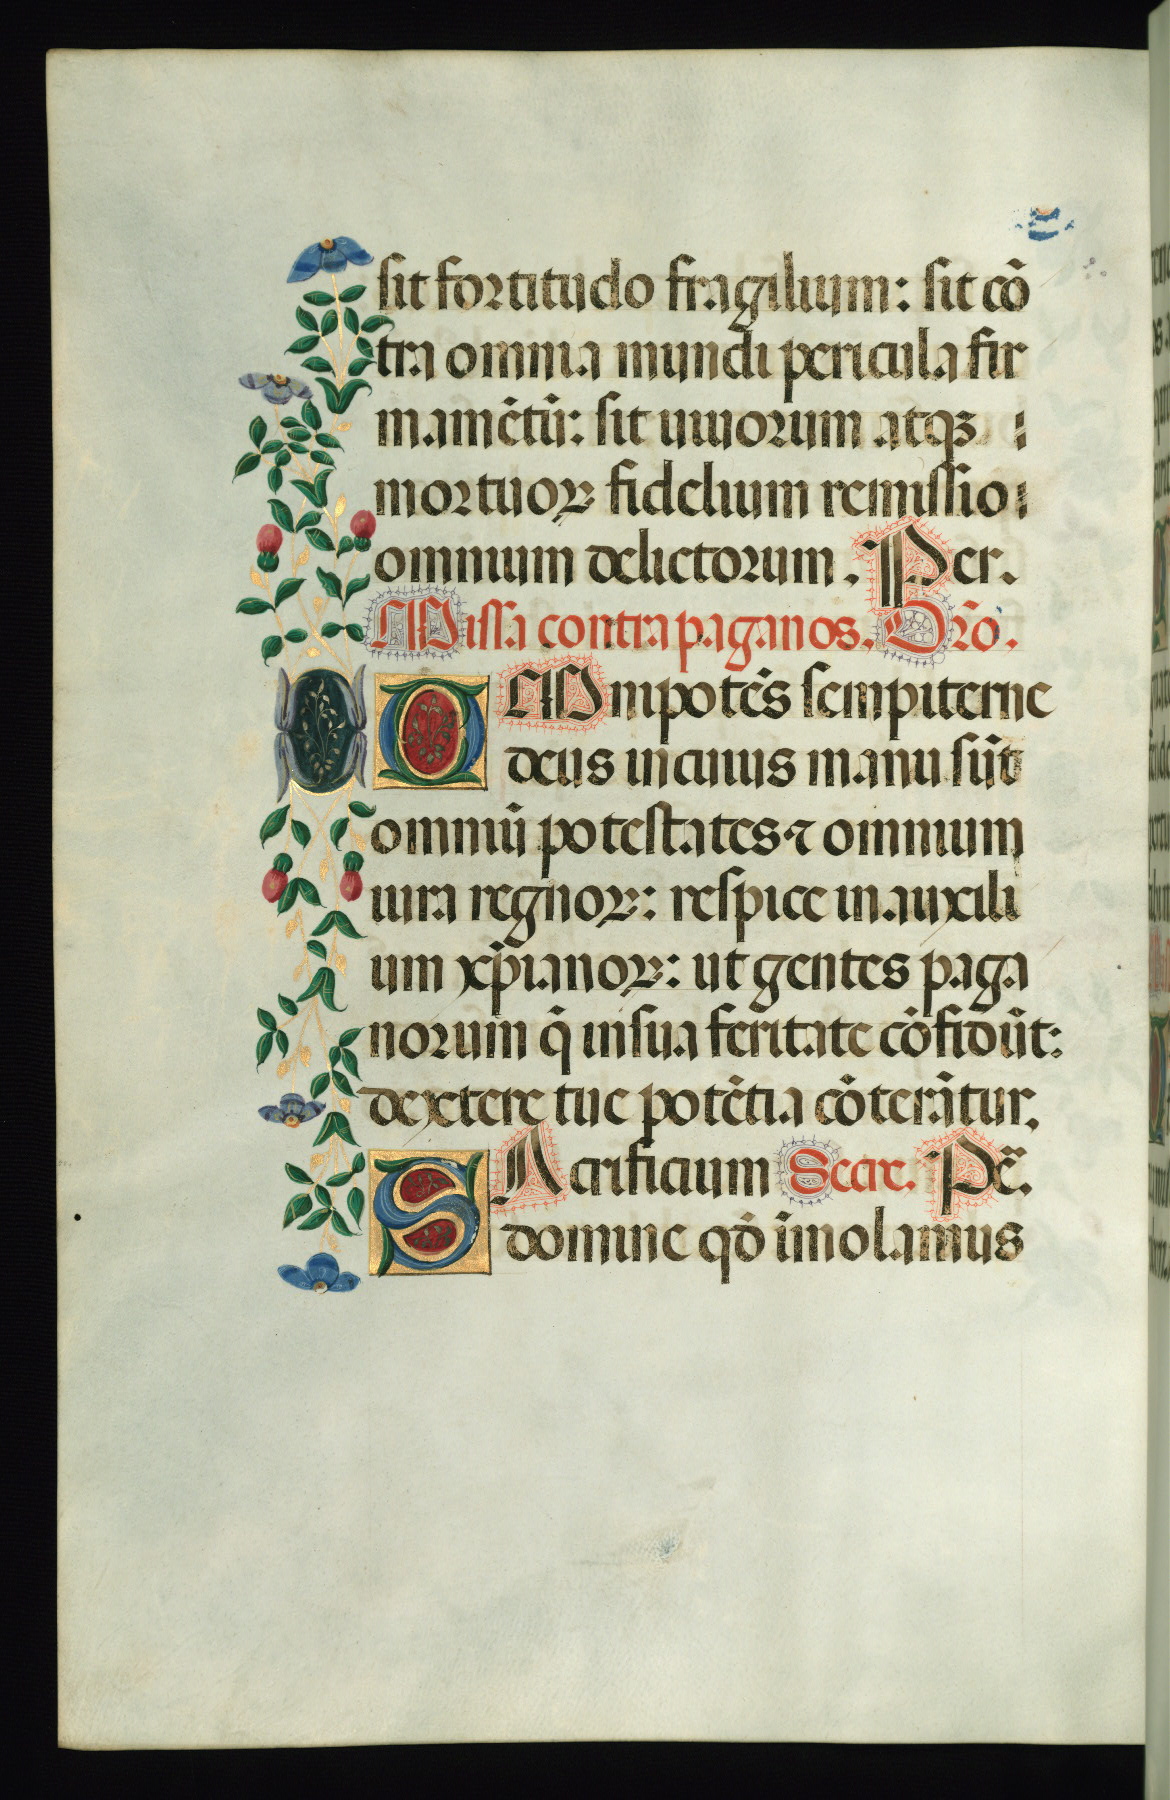 sit fortitudo fragilium: sit cõ
tra omnia mundi pericula fir
mamẽtũ: sit uiuorum atqꝫ
mortuoꝝ fidelium remissio
omnium delictorum. Per.
Missa contra paganos. Orõ.
OMnipotẽs sempiterne
deus in cuius manu sũt
omniũ potestates ⁊ omnium
iura regnoꝝ: respice in auxili
um xp̃ianoꝝ: ut gentes paga
norum q̃ in sua feritate cõfidũt:
dextere tue potẽtia cõterãtur.
SAcrificium Secre. Pẽ.
domine qđ ĩmolamus